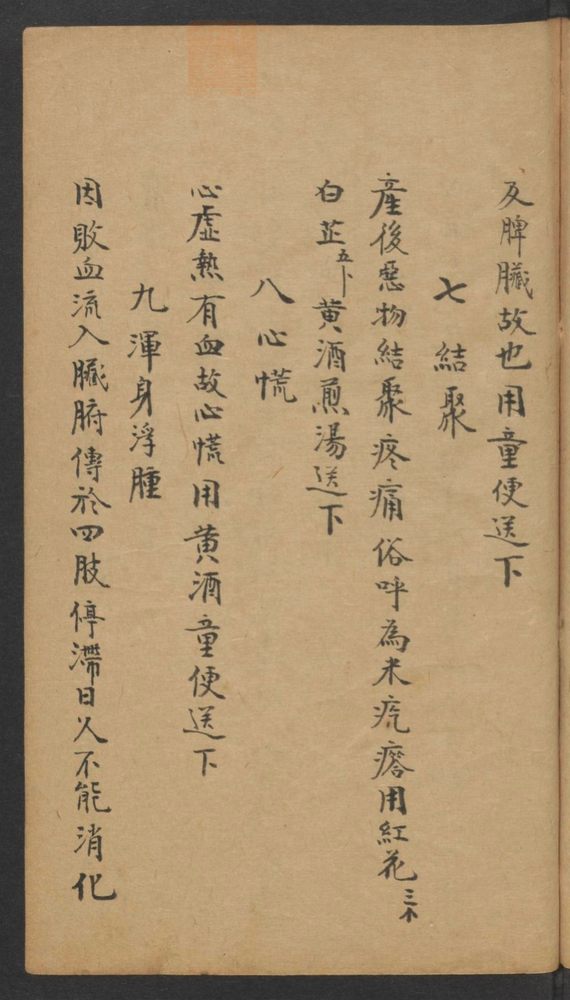 及脾臟故也用童便送下
七結聚
產後惡物結聚疼痛俗呼為米疙瘩用紅花三卜
白芷五卜黄酒煎湯送下
八心慌
心虛熱有血故心慌用黄酒童便送下
九渾身浮腫
因敗血流入臟腑傳於四肢停滯日久不能消化